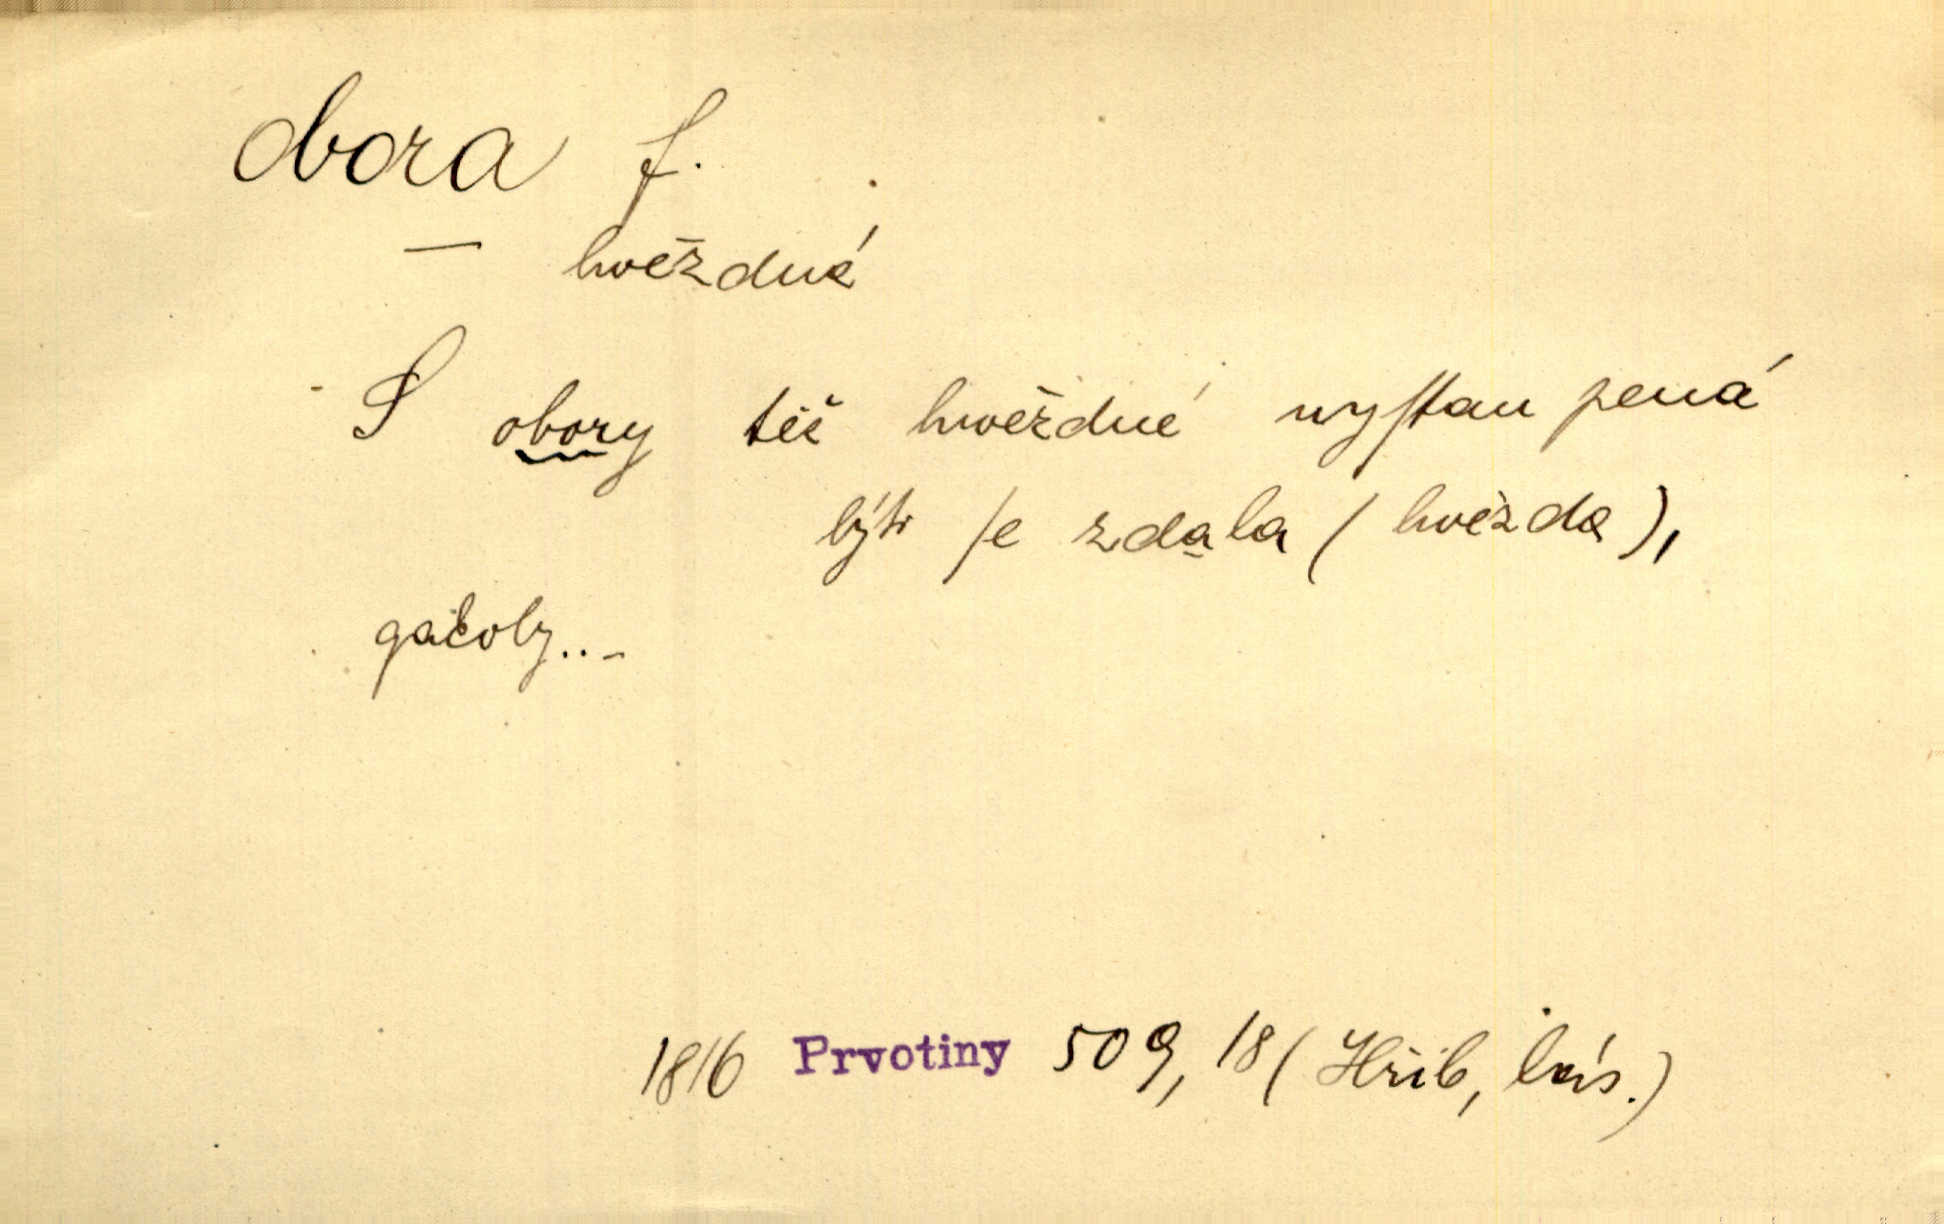 obora f.
— hvězdná
S obory též hwězdné wystaupená
býti se zdala (hvězda),
gakoby...
1816 Prvotiny 509, 18 (Hřib, bás.)